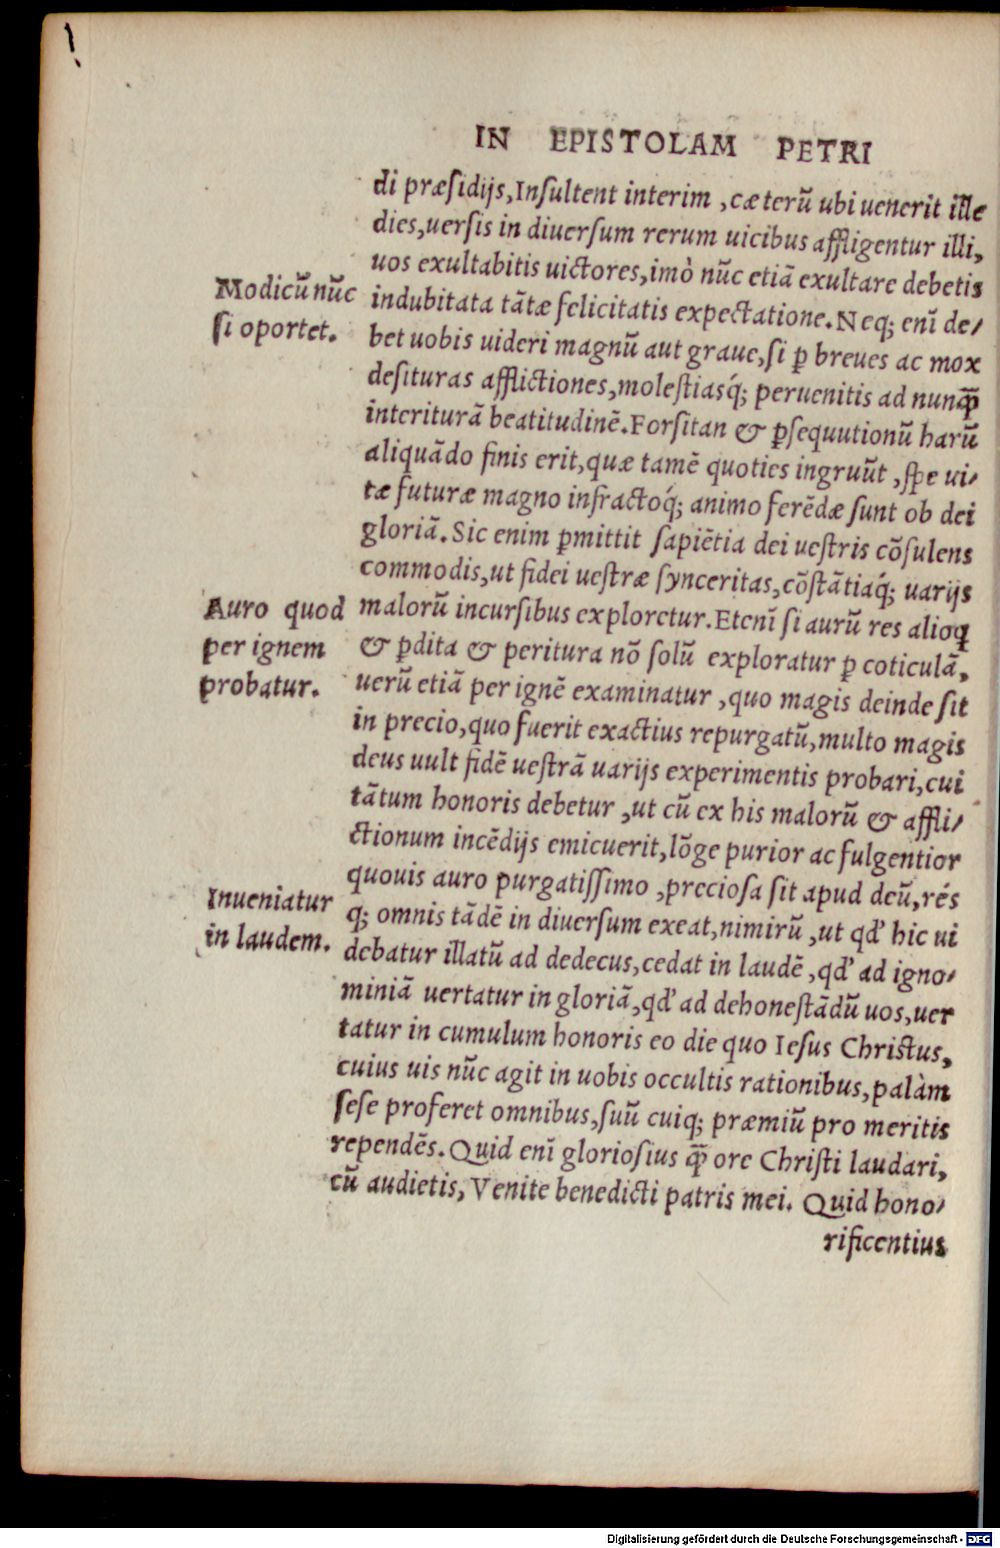 IN EPISTOLAM PETRI
di præsidijs, Insultent interim, cæterũ ubi uenerit ille
dies, uersis in diuersum rerum uicibus affligentur illi,
uos exultabitis uictores, imò nũc etiã exultare debetis
Modicũ nũc
si oportet.
indubitata tãtæ felicitatis expectatione. Neq; enĩ de/
bet uobis uideri magnũ aut graue, si ꝑ breues ac mox
desituras afflictiones, molestiasq́; peruenitis ad nunꝙ̃
interiturã beatitudinẽ. Forsitan & ꝑsequutionũ harũ
aliquãdo finis erit, quæ tamẽ quoties ingruũt, spe ui/
tæ futuræ magno infractoq́; animo ferẽdæ sunt ob dei
gloriã. Sic enim ꝑmittit sapiẽtia dei uestris cõsulens
commodis, ut fidei uestræ synceritas, cõstãtiaq́; uarijs
Auro quod
per ignem
probatur.
malorũ incursibus exploretur. Etenĩ si aurũ res alioꝗ
& ꝑdita & peritura nõ solũ exploratur ꝑ coticulã,
uerũ etiã per ignẽ examinatur, quo magis deinde sit
in precio, quo fuerit exactius repurgatũ, multo magis
deus uult fidẽ uestrã uarijs experimentis probari, cui
tãtum honoris debetur, ut cũ ex his malorũ & affli/
ctionum incẽdijs emicuerit, lõge purior ac fulgentior
quouis auro purgatissimo, preciosa sit apud deũ, rés
Inueniatur
in laudem.
q; omnis tãdẽ in diuersum exeat, nimirũ, ut qđ hic ui
debatur illatũ ad dedecus, cedat in laudẽ, qđ ad igno/
miniã uertatur in gloriã, qđ ad dehonestãdũ uos, uer
tatur in cumulum honoris eo die quo Iesus Christus,
cuius uis nũc agit in uobis occultis rationibus, palàm
sese proferet omnibus, suũ cuiq; præmiũ pro meritis
rependẽs. Quid enĩ gloriosius ꝙ̃ ore Christi laudari,
cũ audietis, Venite benedicti patris mei. Quid hono/
rificentius
Digitalisierung gefördert durch die Deutsche Forschungsgemeinschaft - DFG